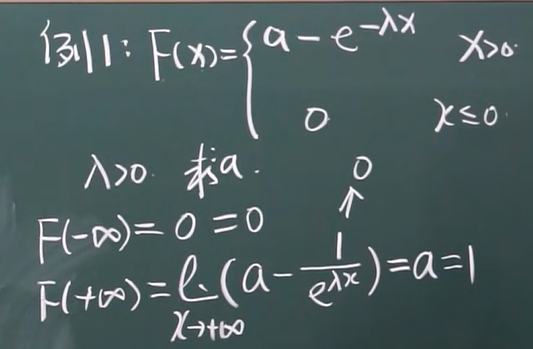 例1: F(x)={a-e^{-λx} x>0.
0 x≤0.
λ>0. 求a. 0
↑
F(-∞)=0=0
F(+∞)=l.(a-1/e^{λx})=a=1
x→+∞